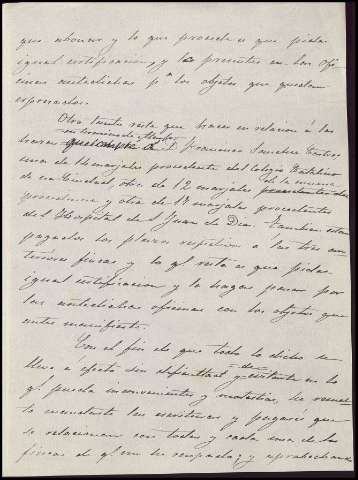 que abonar y lo que procede es que pida
igual certificacion, y la presente en las ofi
cinas antedichas p.ª los objetos que quedan
expresados.
Otro tanto resta que hacer en relacion á las
hazas D. Francisco Sanchez
una de 14 marjales procedente del Colegio Catalino
de la misma
de esa Ciudad, otra de 12 marjales
procedencia y otra de 17 marjales procedentes
del Hospital de S. Juan de Dios. Tambien estan
pagados los plazos respectivos a las tres an
teriores fincas y lo q.l resta es que pida
igual certificacion y la haga pasar por
las antedichas oficinas con los objetos que
antes manifiesto.
Con el fin de que todo lo dicho se
lleve a efecto sin y en lo
q.l pueda inconvenientes y molestias, he
la escrituras y pagarés que
se relacionan con todas y cada una de las
fincas de q.l me he ocupado; y aprovechando